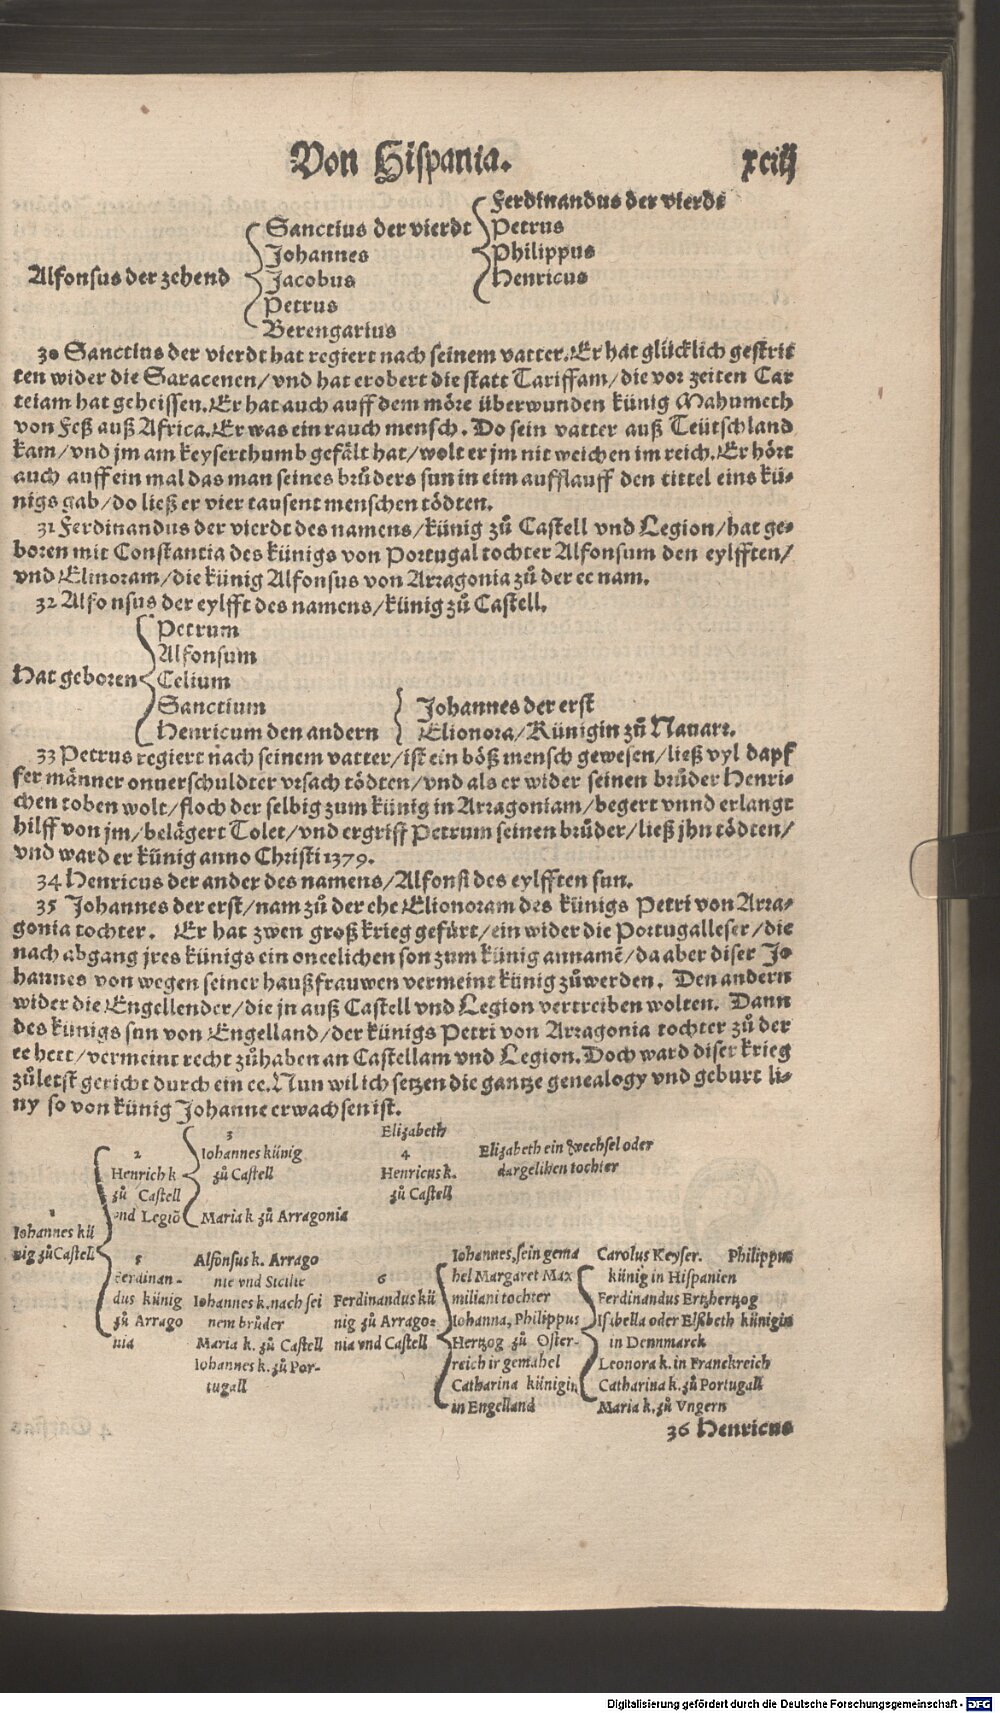 Von Hispania. xciij
Ferdinandus der vierde
Sanctius der vierdt Petrus
Johannes Philippus
Alfonsus der zehend Jacobus Henricus
Petrus
Berengarius
30 Sanctius der vierdt hat regiert nach seinem vatter. Er hat glücklich gestrit
ten wider die Saracenen/ vnd hat erobert die statt Tariffam/ die vor zeiten Car
teiam hat geheissen. Er hat auch auff dem möre überwunden künig Mahumeth
von Feß auß Africa. Er was ein rauch mensch. Do sein vatter auß Teütschland
kam/ vnd jm am keyserthumb gefält hat/ wolt er jm nit weichen im reich. Er hört
auch auff ein mal das man seines brůders sun in eim aufflauff den tittel eins kü-
nigs gab/ do ließ er vier tausent menschen tödten.
31 Ferdinandus der vierdt des namens/ künig zů Castell vnd Legion/ hat ge-
boren mit Constantia des künigs von Portugal tochter Alfonsum den eylfften/
vnd Elinoram/ die künig Alfonsus von Arragonia zů der ee nam.
32 Alfonsus der eylfft des namens/ künig zů Castell.
Petrum
Alfonsum
Hat geboren Celium
Sanctium Johannes der erst
Henricum den andern Elionora/ Künigin zů Nauarr.
33 Petrus regiert nach seinem vatter/ ist ein böß mensch gewesen/ ließ vyl dapf
fer männer onuerschuldter vrsach tödten/ vnd als er wider seinen brůder Henri-
chen toben wolt/ floch der selbig zum künig in Arragoniam/ begert vnnd erlangt
hilff von jm/ belägert Tolet/ vnd ergriff Petrum seinen brůder/ ließ jhn tödten/
vnd ward er künig anno Christi 1379.
34 Henricus der ander des namens/ Alfonsi des eylfften sun.
35 Johannes der erst/ nam zů der ehe Elionoram des künigs Petri von Arra-
gonia tochter. Er hat zwen groß krieg gefürt/ ein wider die Portugalleser/ die
nach abgang jres künigs ein oneelichen son zum künig annamē/ da aber diser Jo
hannes von wegen seiner haußfrauwen vermeint künig zůwerden. Den andern
wider die Engellender/ die jn auß Castell vnd Legion vertreiben wolten. Dann
des künigs sun von Engelland/ der künigs Petri von Arragonia tochter zů der
ee hett/ vermeint recht zůhaben an Castellam vnd Legion. Doch ward diser krieg
zůletst gericht durch ein ee. Nun wil ich setzen die gantze genealogy vnd geburt li-
ny so von künig Johanne erwachsen ist.
1
Iohannes kü
nig zů Castell
2
Henrich k
zů Castell
vnd Legiō
3
Iohannes künig
zů Castell
Maria k. zů Arragonia
Elizabeth
4
Henricus k.
zů Castell
Elizabeth ein wechsel oder
dargelihen tochter
5
Ferdinan-
dus künig
zů Arrago
nia
Alfonsus k. Arrago
nie vnd Sicilie
Iohannes k. nach sei
nem brůder
Maria k. zů Castell
Iohannes k. zů Por-
tugall
6
Ferdinandus kü
nig zů Arrago-
nia vnd Castell
Iohannes, sein gema
hel Margaret Max
miliani tochter
Iohanna, Philippus
Hertzog zů Oster-
reich ir gemahel
Catharina künigin
in Engelland
Carolus Keyser. Philippus
künig in Hispanien
Ferdinandus Ertzhertzog
Isabella oder Elsbeth künigin
in Dennmarck
Leonora k. in Franckreich
Catharina k. zů Portugall
Maria k. zů Vngern
36 Henricus
Digitalisierung gefördert durch die Deutsche Forschungsgemeinschaft - DFG